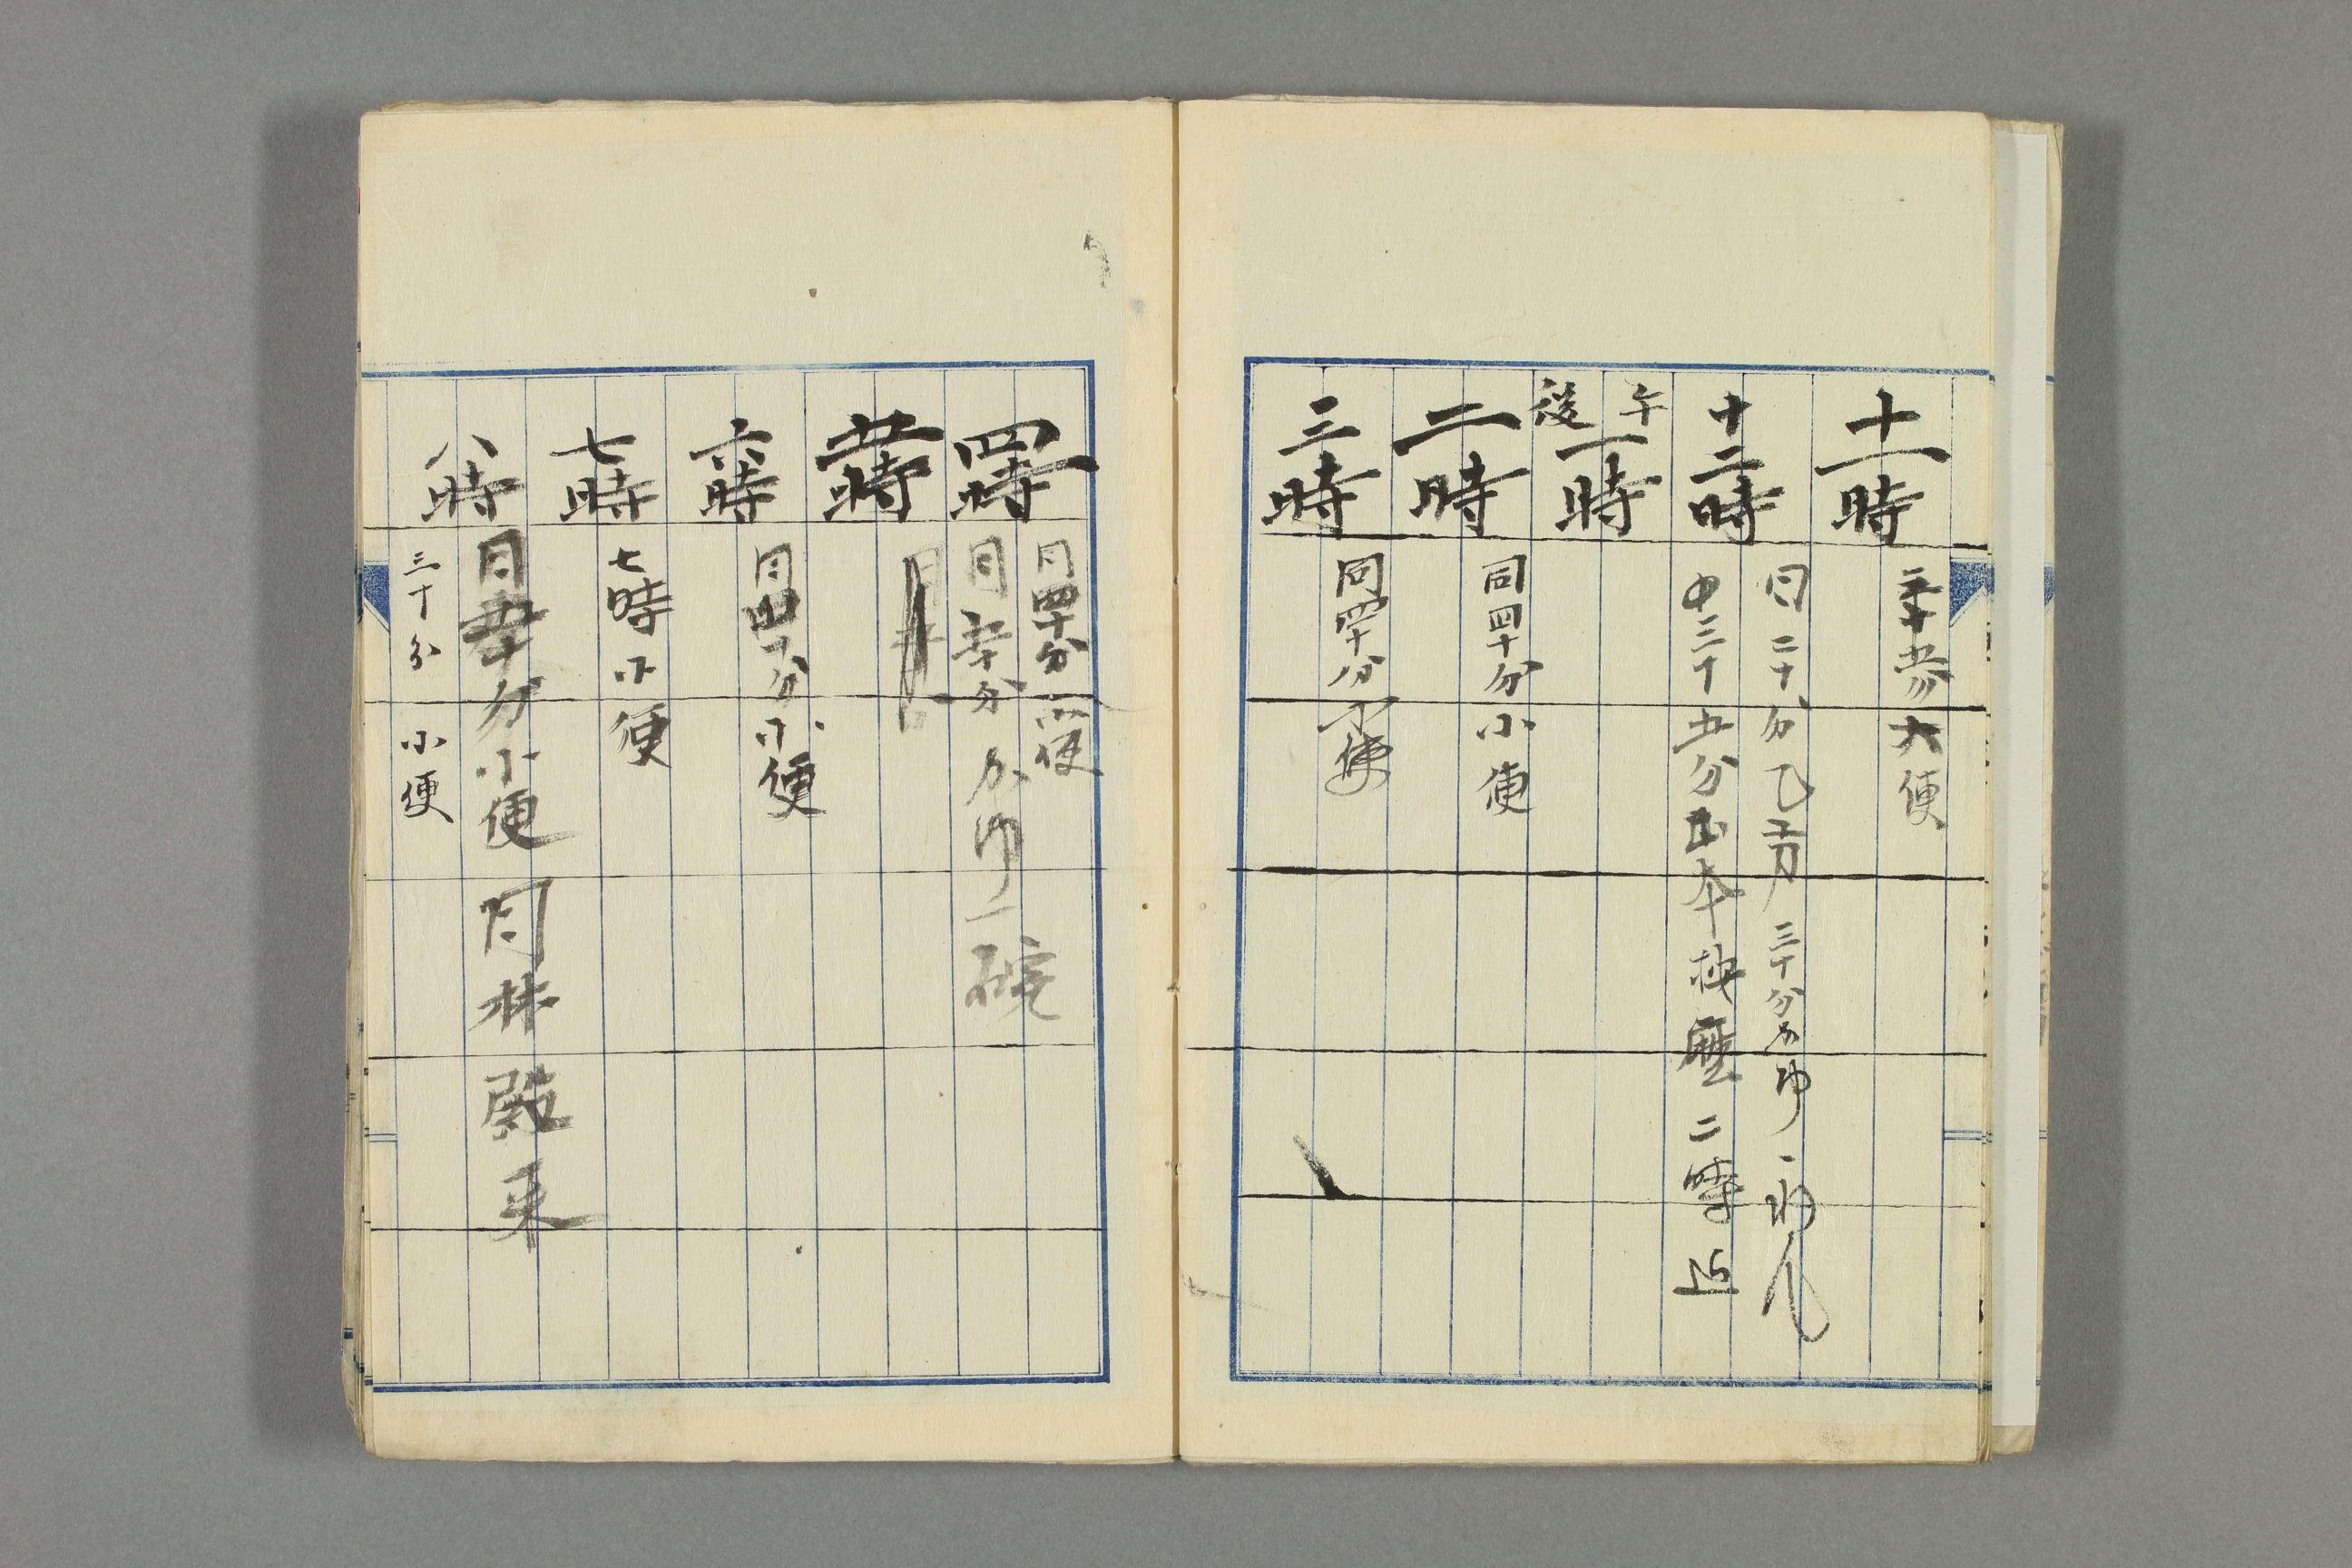 十一時
二十五分大便
十二時
同二十分
三十分かゆ
同三十五分山本按摩二時迄
午後
一時
二時
同四十分小便
三時
同四十分小便
四時
同四十分小便
同五十分かゆ一碗
五時
六時
同四十分小便
七時
七時小便
八時
同五十分小便 同林殿来
三十分 小便